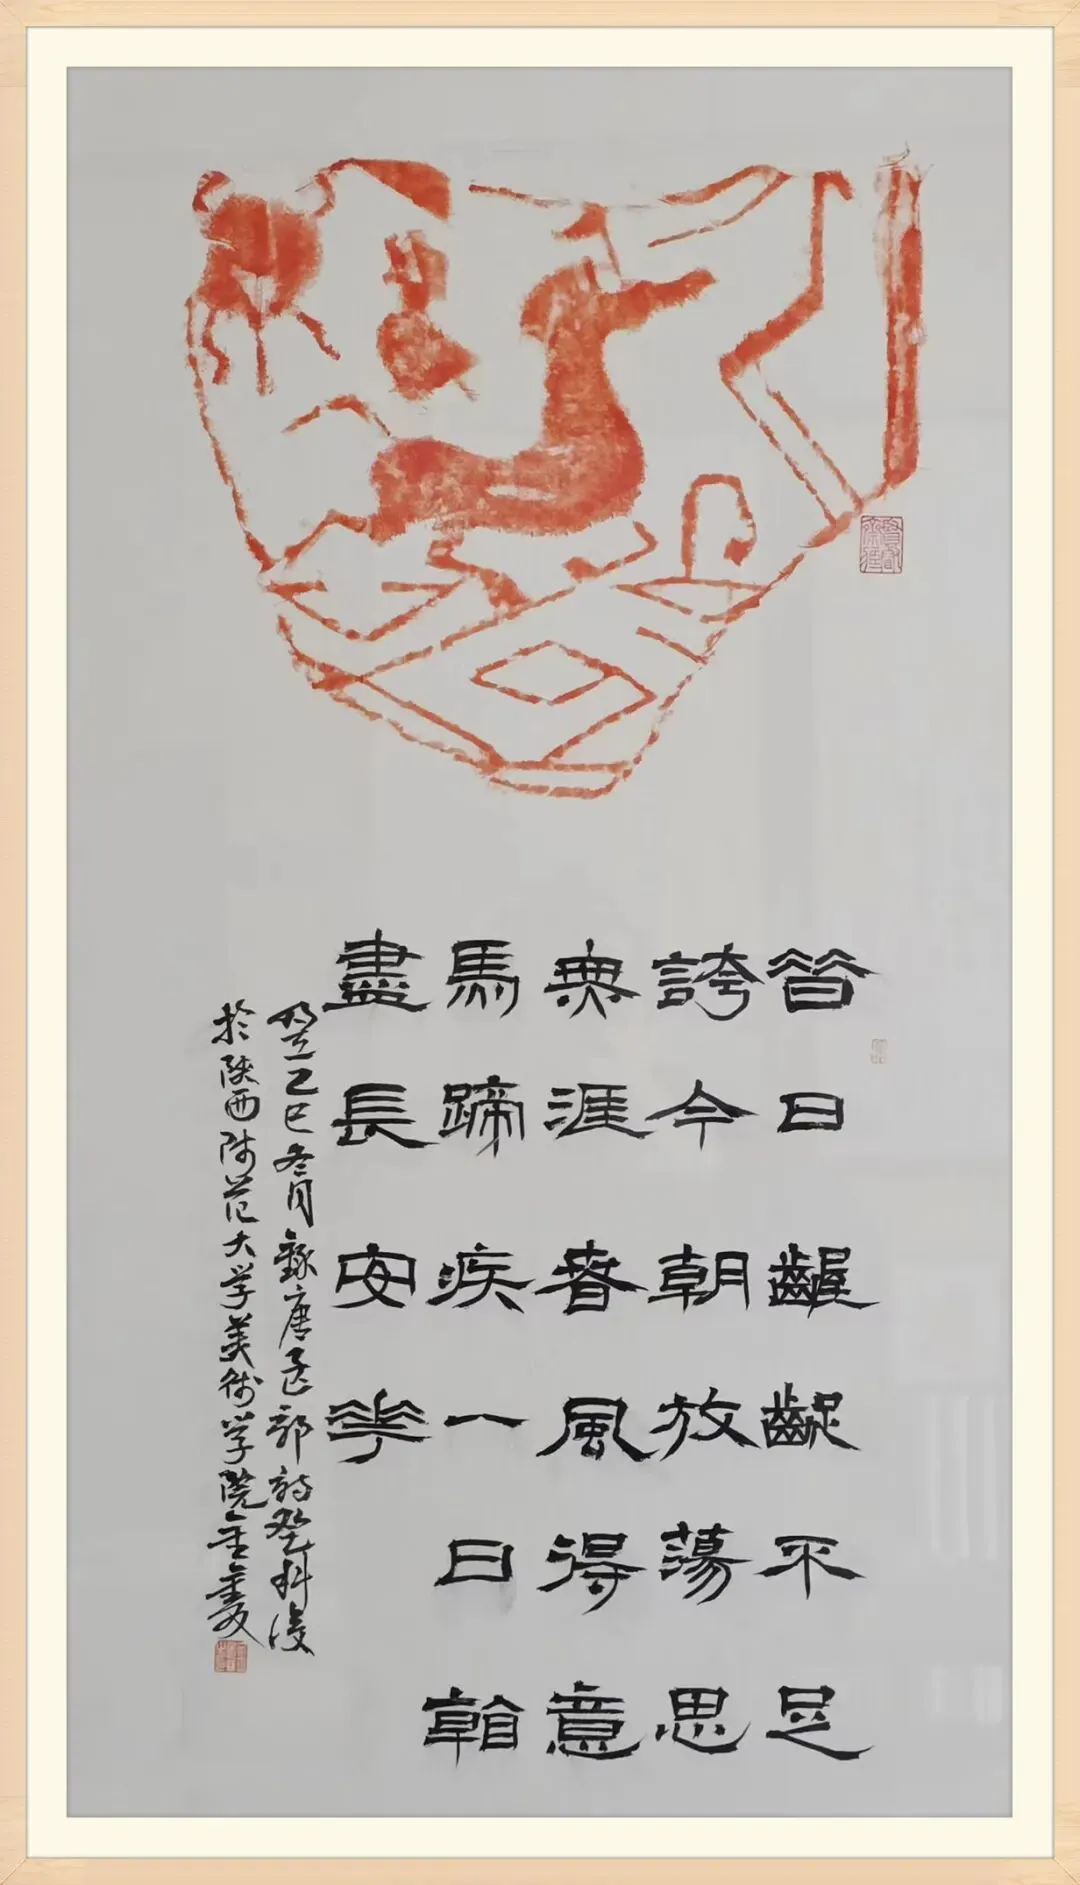 昔日齷齪不足
誇今朝放蕩思
無涯春風得意
馬蹄疾一日看
盡長安花
乙巳冬月錄唐孟郊詩登科後
於陝西师范大学美術学院